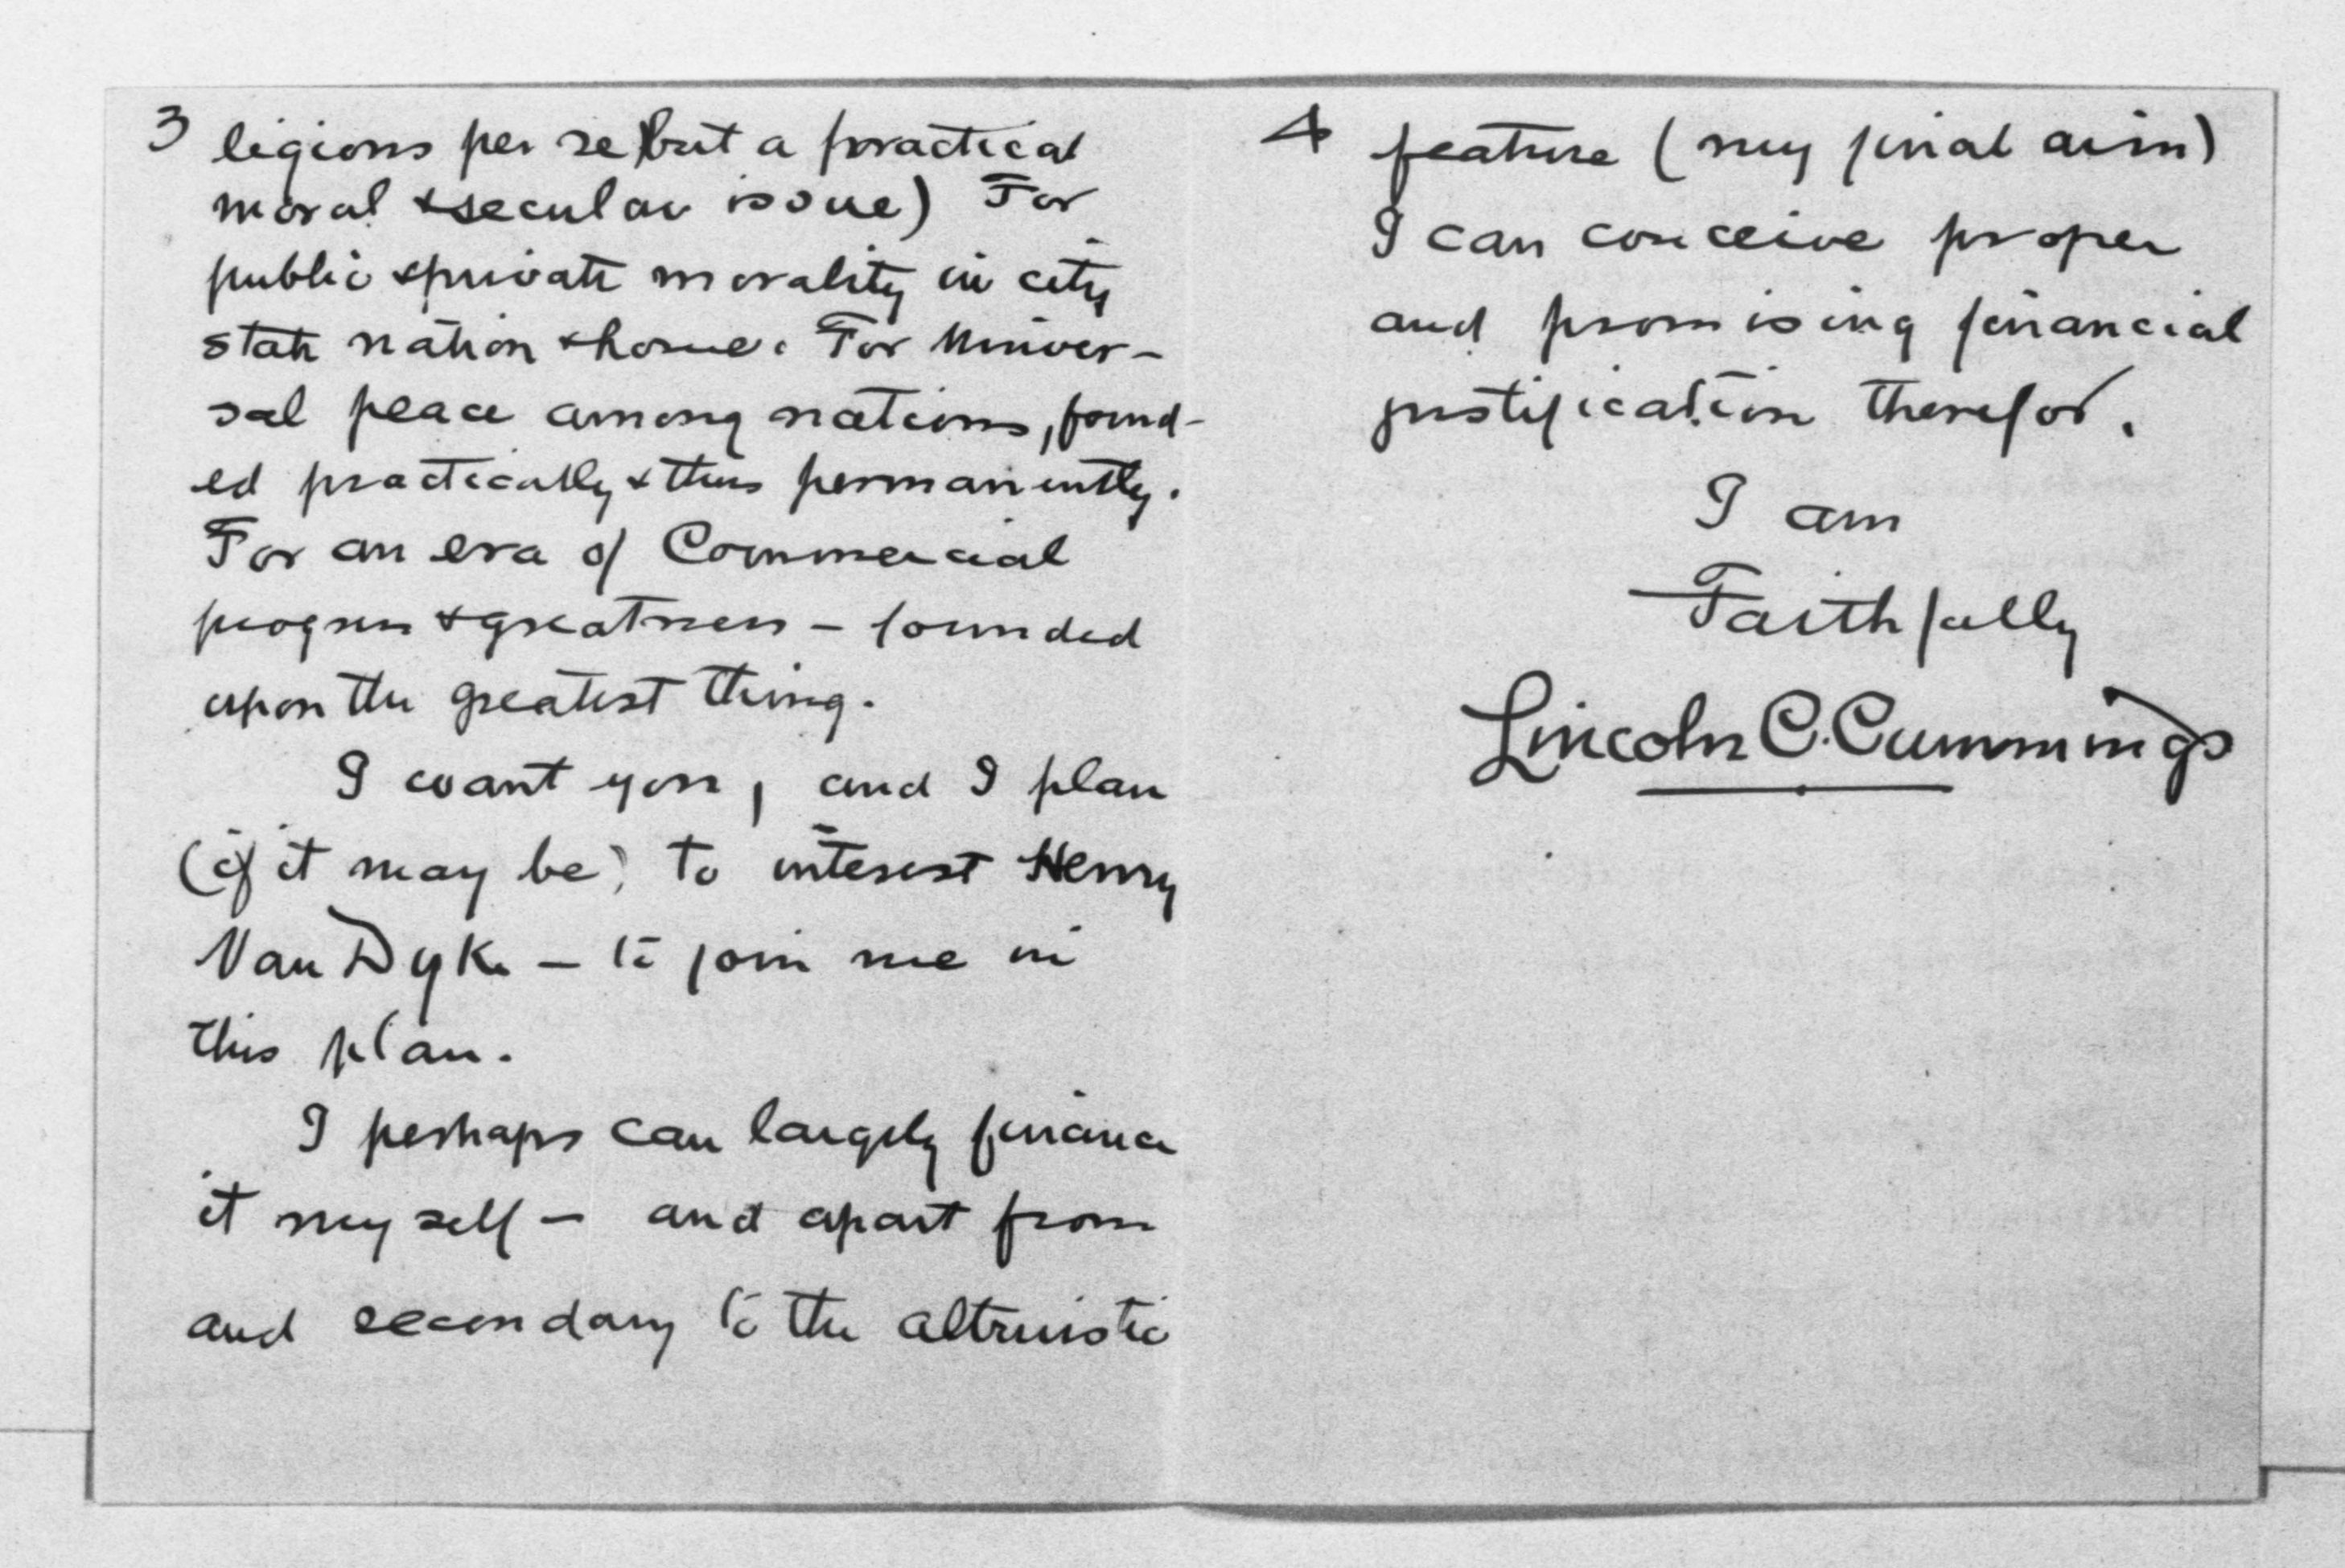 3
ligions per se but a practical
moral & secular issue) For
public & private morality in city
state nation & home. For Univer-
sal peace among nations, found-
ed practically & thus permanently.
For an era of Commercial
progress & greatness - founded
upon the greatest thing.
I want you, and I plan
(if it may be) to interest Henry
Van Dyke - to join me in
this plan.
I perhaps can largely finance
it myself - and apart from
and secondary to the altruistic
4
feature (my final aim)
I can conceive proper
and promising financial
justification therefor.
I am
Faithfully
Lincoln C. Cummings